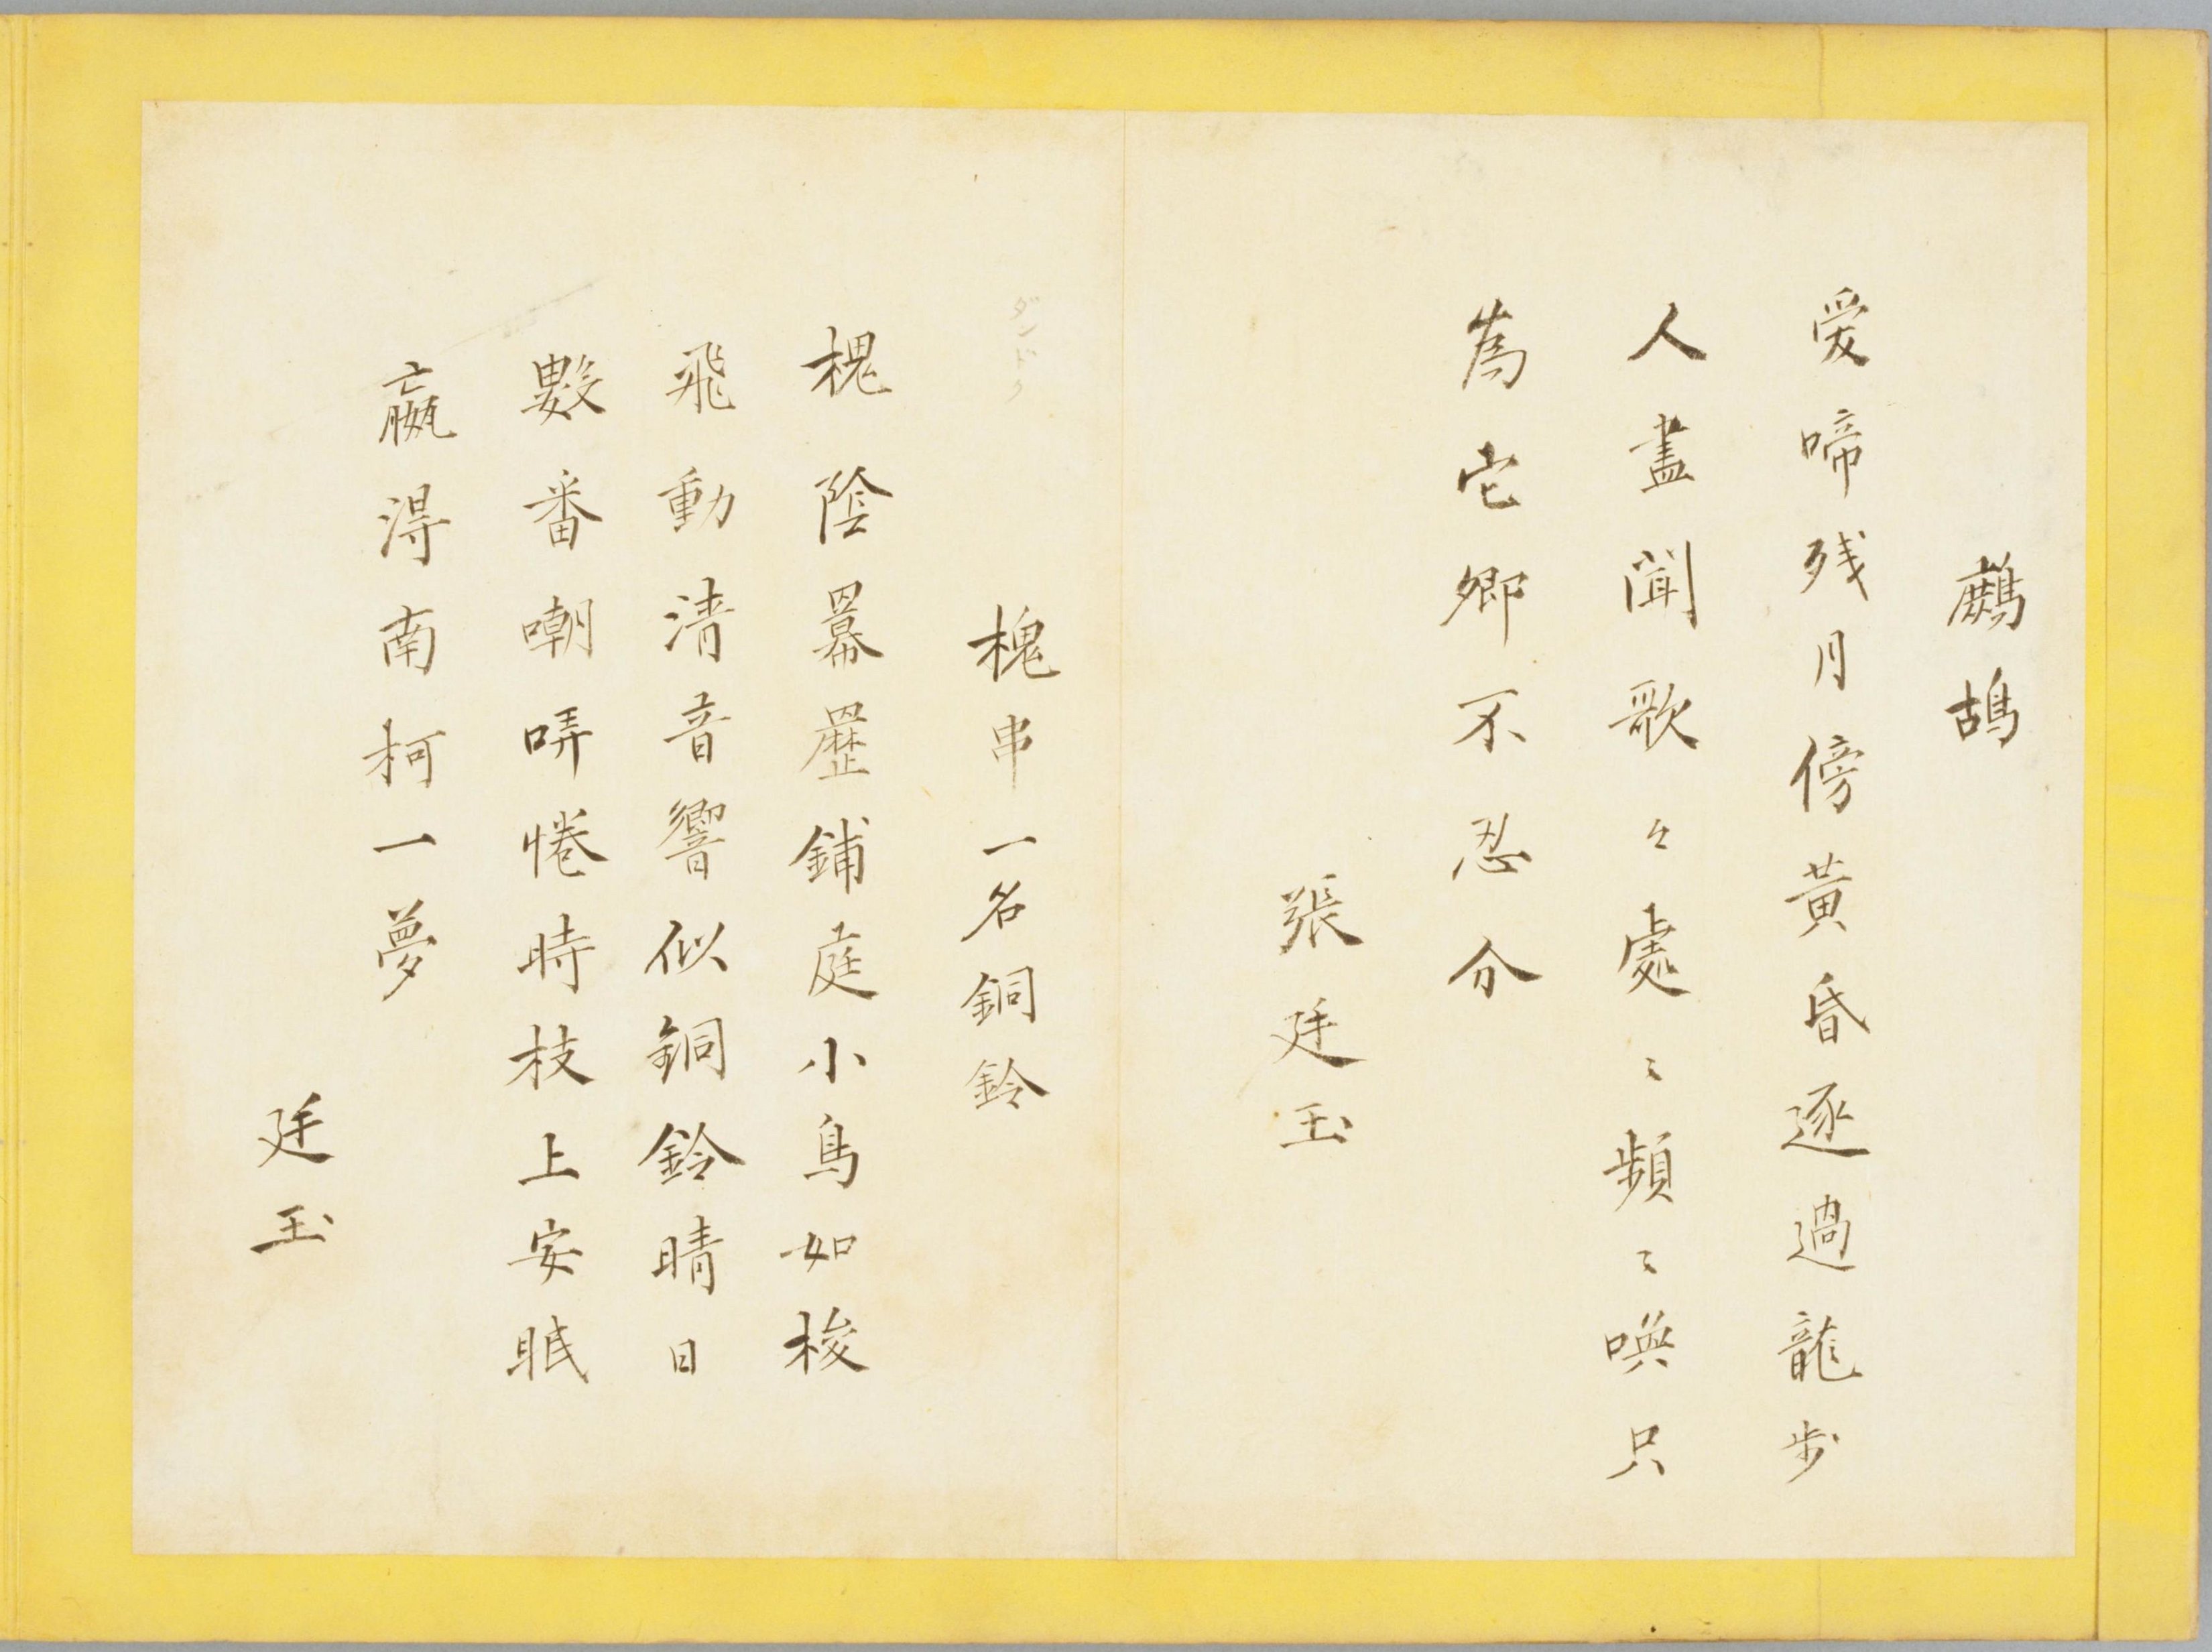 鷓鴣
愛啼残月傍黃昏逐過龍步
人盡闻歌々處〻頻〻喚只
為它卿不忍分
張廷玉
槐串 一名銅鈴
ダンドク
槐陰羃䍥鋪庭小鳥如梭
飛動清音響似銅鈴晴日
數番嘲哢惓時枝上安眠
贏得南柯一夢
廷玉